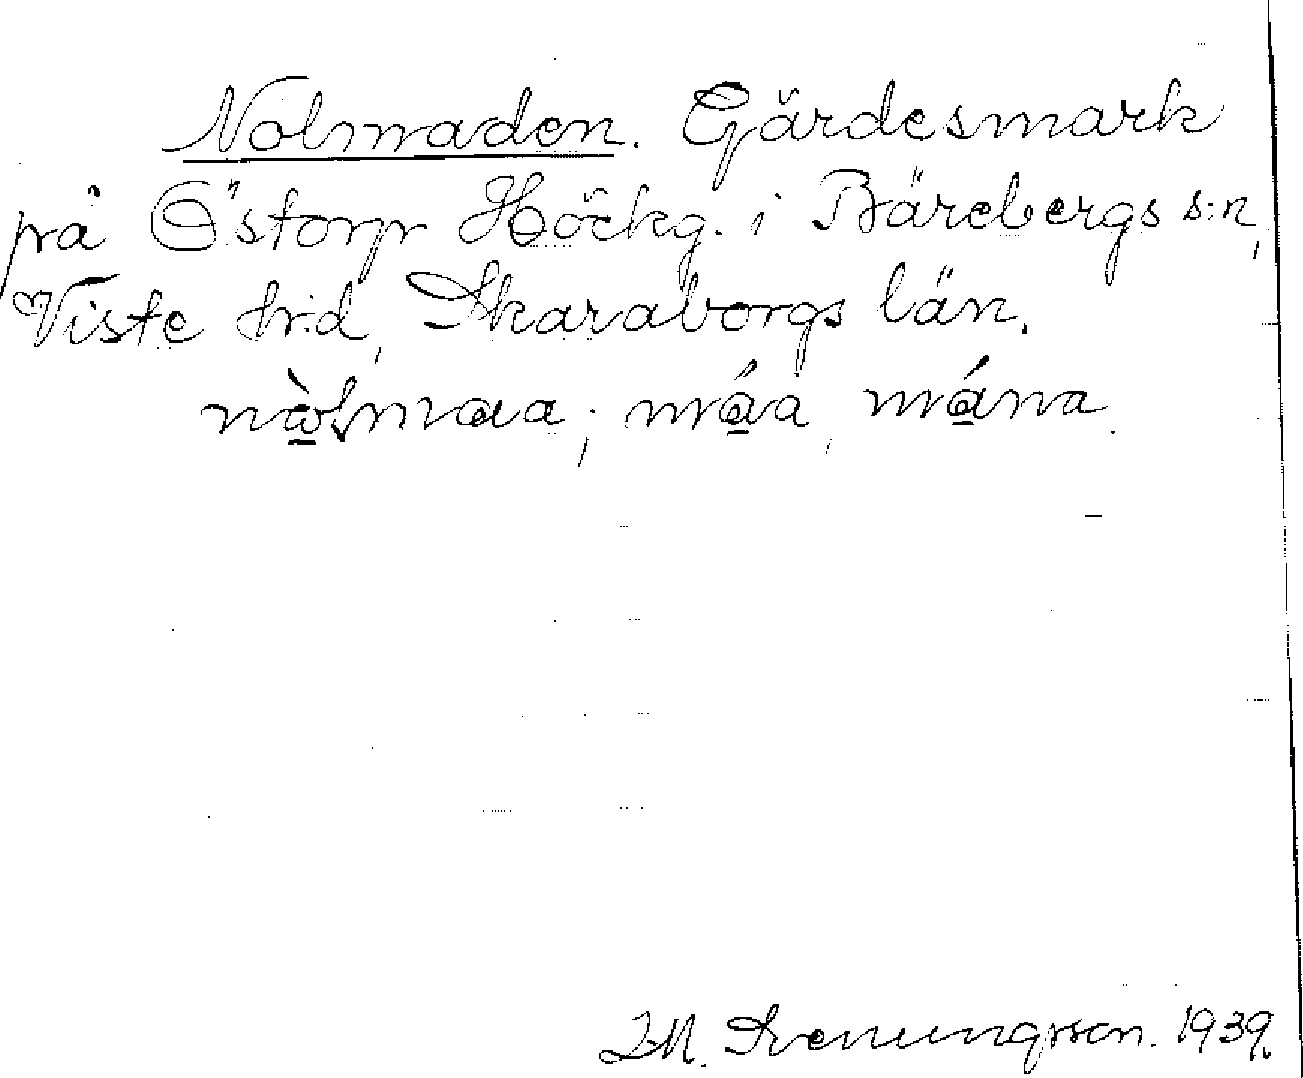 Nolmaden. Gärdesmark
på Östorp Höckg. i Bärebergs s:n,
Viste h:d, Skaraborgs län.
nò̱lmaa; má̱a, má̱na.
I.M. Svenungsson. 1939.